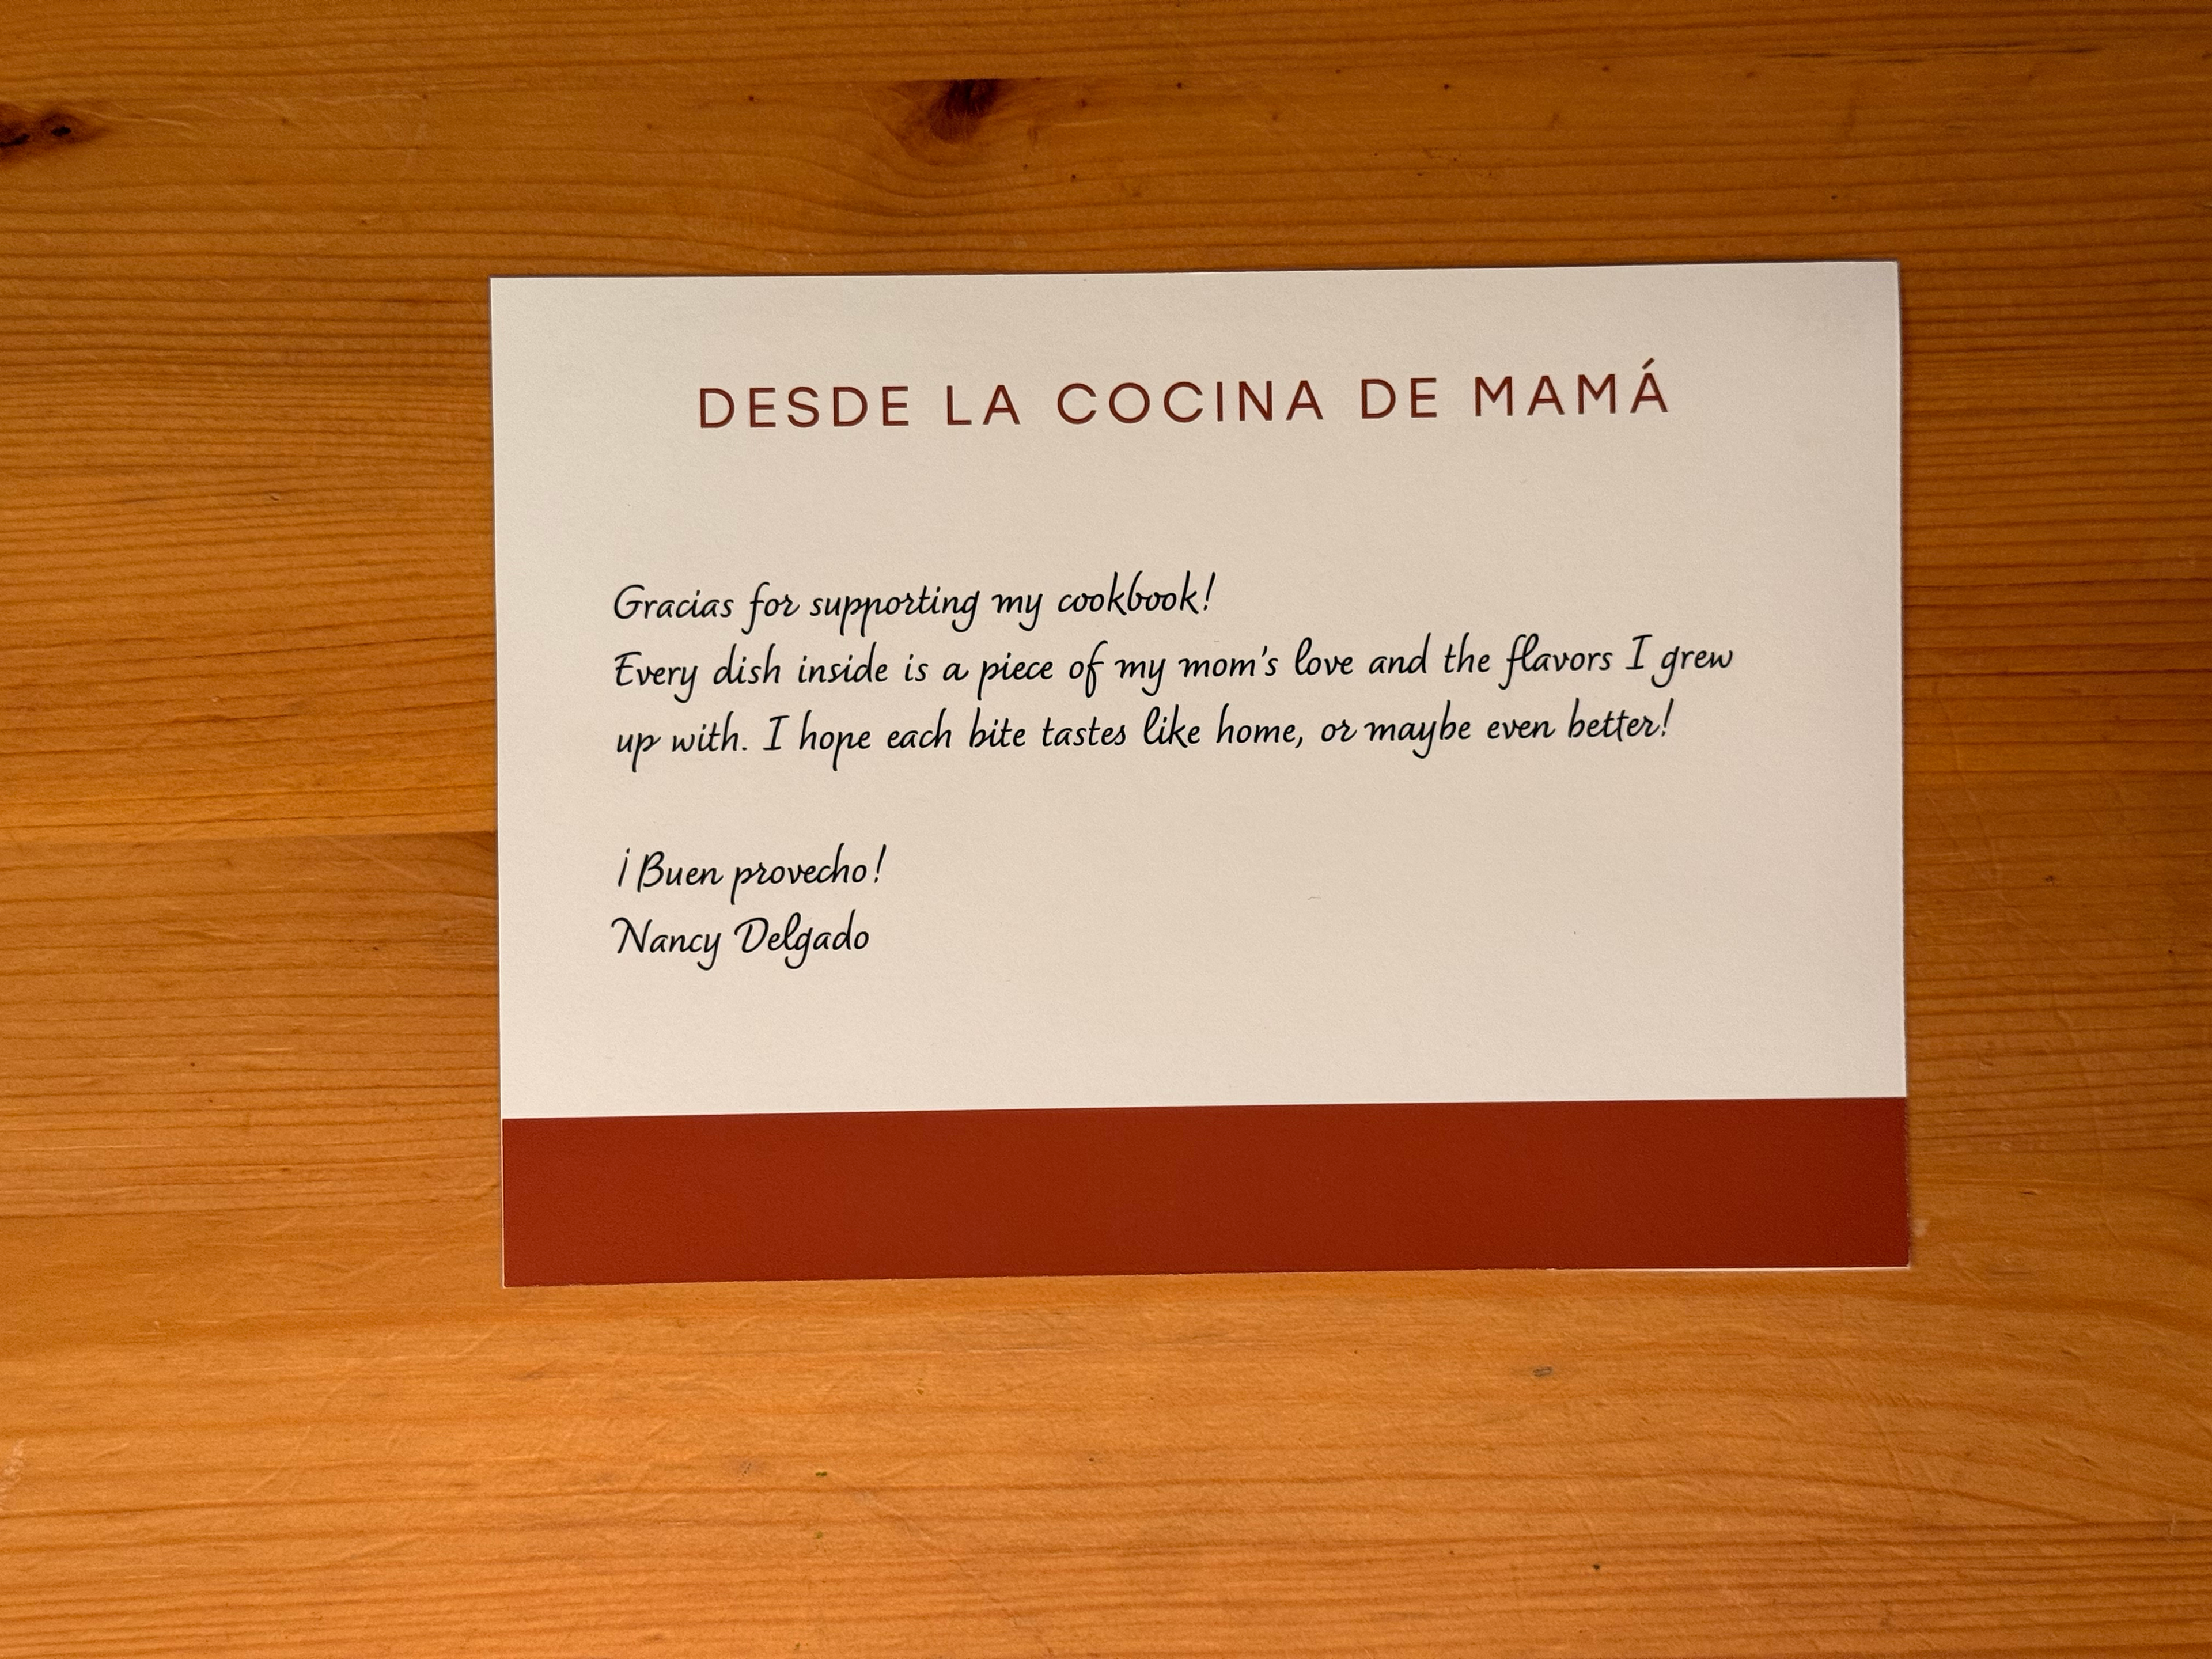 DESDE LA COCINA DE MAMÁ
Gracias for supporting my cookbook!
Every dish inside is a piece of my mom's love and the flavors I grew
up with. I hope each bite tastes like home, or maybe even better!
¡Buen provecho!
Nancy Delgado